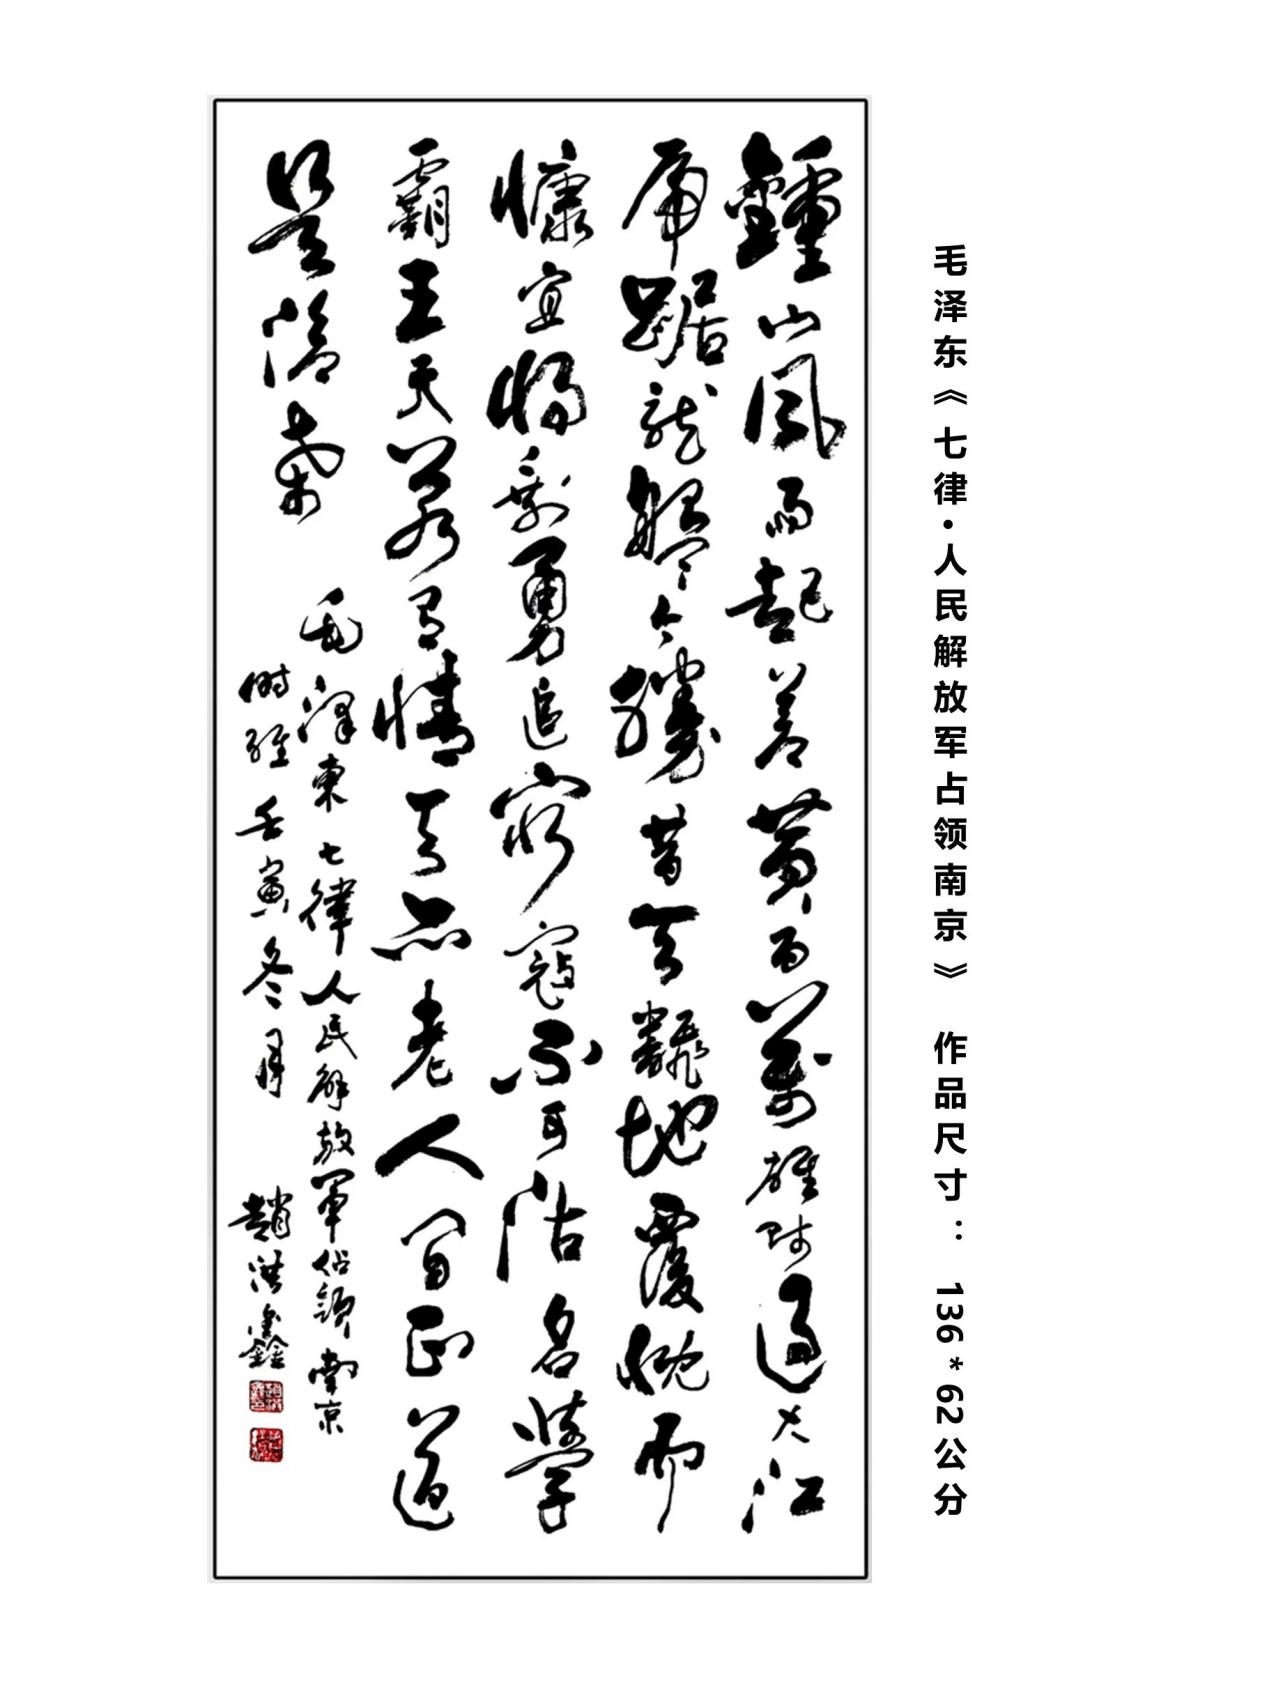 毛泽东《七律·人民解放军占领南京》 作品尺寸： 136*62公分
鍾山風雨起蒼黃百萬雄師過大江
虎踞龍盤今勝昔天翻地覆慨而
慷宜將剩勇追窮寇不可沽名學
霸王天若有情天亦老人間正道
是滄桑
毛澤東七律人民解放軍佔領南京
時維壬寅冬月 趙洪鑫